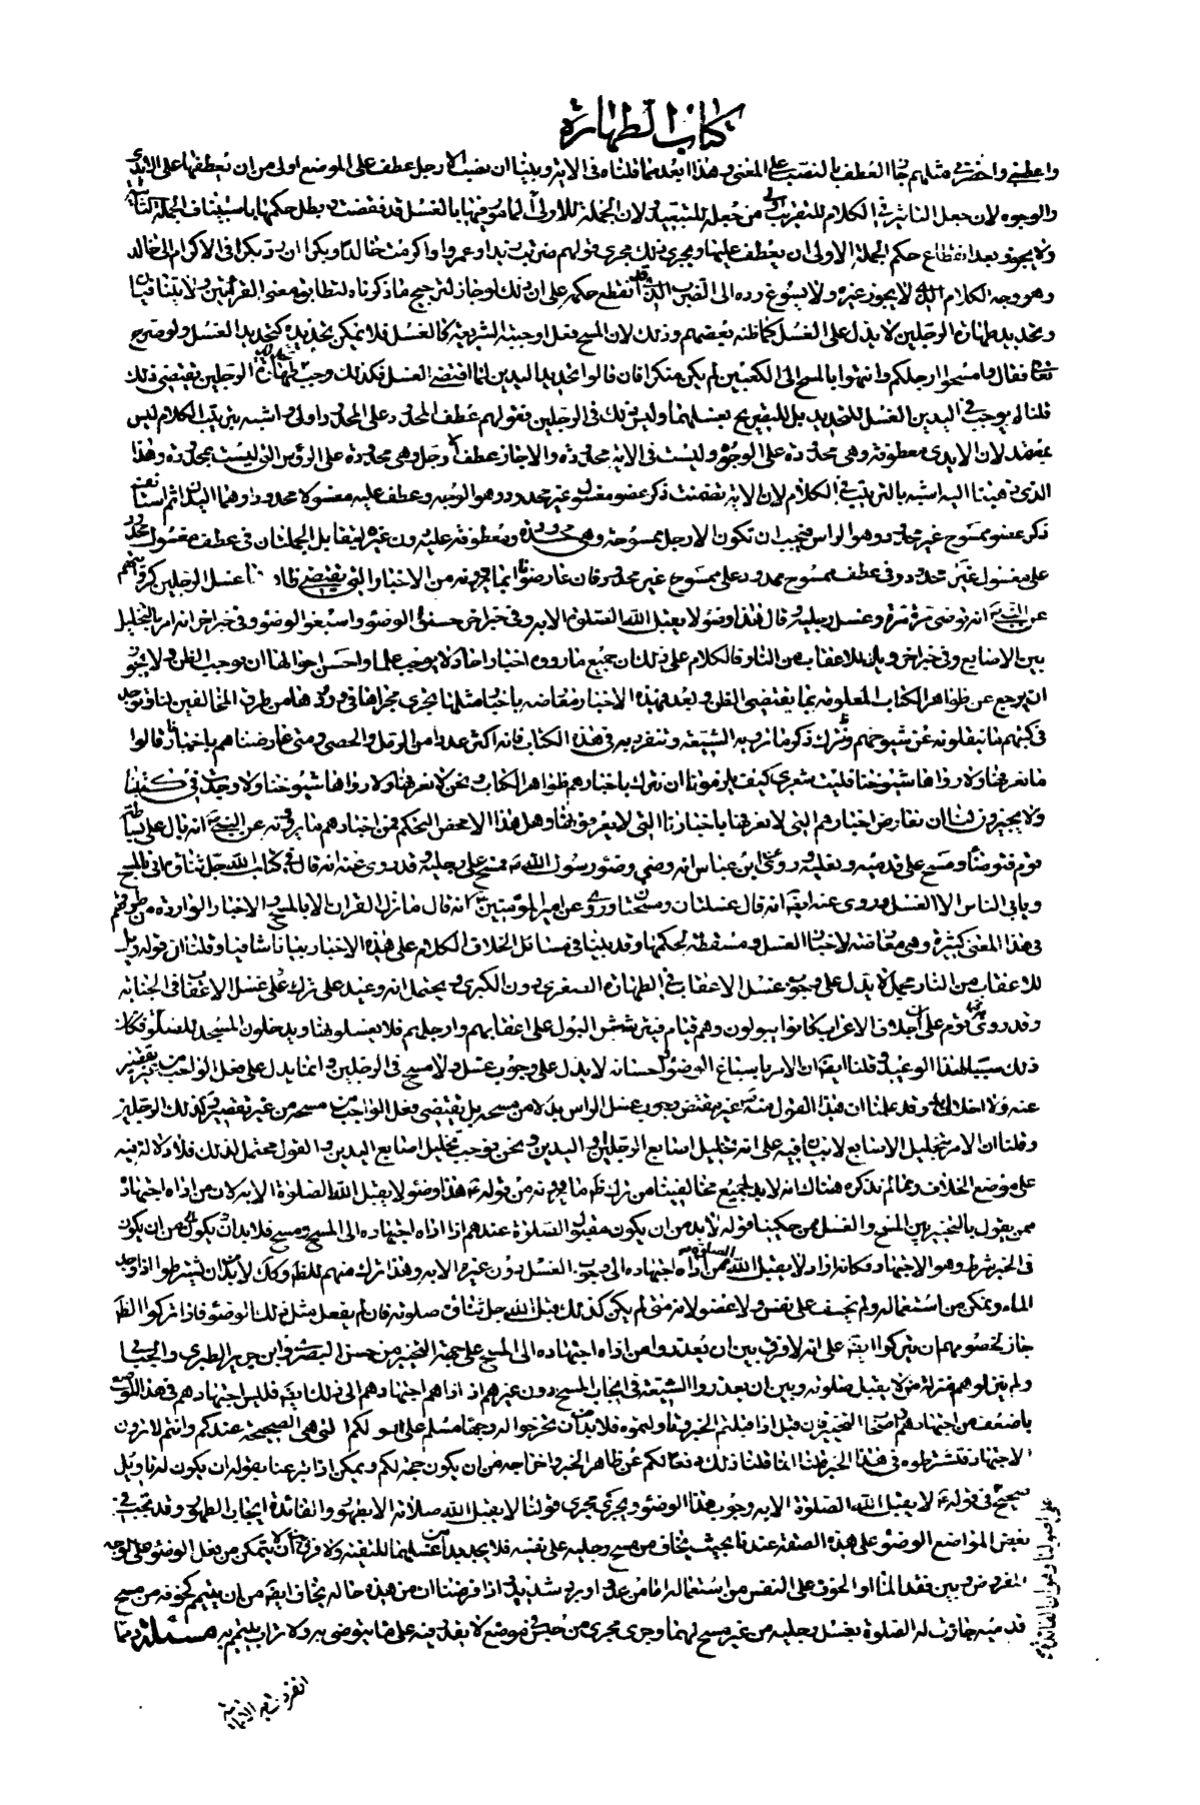 كتاب الطهارة
واعطني واحضرني مثلهم جاء العطف بالنصب على المعنى وهذا ابعد مما قلناه في الاية وبينا ان نصب الارجل عطف على الموضع اولى من ان نعطفها على الايدي
والوجوه لان جعل التاثير في الكلام للقريب اولى من جعله للبعيد لان الجملة الاولى المأمور فيها بالغسل قد نقضت وبطل حكمها باستيناف الجملة الثانية
ولا يجوز بعد انقطاع حكم الجملة الاولى ان يعطف عليها ويجري ذلك مجرى قولهم ضربت زيدا وعمروا واكرمت خالدا وبكرا ان رد بكر في الاكرام الى خالد
وهو وجه الكلام الذي لا يجوز غيره ولا يسوغ رده الى الضرب الذي قد انقطع حكمه على ان ذلك لو جاز لترجح ما ذكرناه لتطابق معنى القرائتين ولا يتنافيان
وتحديد طهارة الرجلين لا يدل على الغسل كما ظنه بعضهم وذلك لان المسح فعل اوجبته الشريعة كالغسل فلا ينكر تحديده كتحديد الغسل ولو صرح
تعالى فقال وامسحوا ارجلكم وانتهوا بالمسح الى الكعبين لم يكن منكرا فان قالوا تحديد اليدين لما اقتضى الغسل فكذلك وجب تحديد طهارة الرجلين يقتضي ذلك
قلنا لم يوجب في اليدين الغسل للتحديد بل للتصريح بغسلهما وليس ذلك في الرجلين فقولهم عطف المحدود على المحدود اولى واشبه بترتيب الكلام ليس
بمعتمد لان الايدي معطوفة وهي محدودة على الوجوه وليست في الاية محدودة والا جاز عطف الارجل وهي محدودة على الرؤس التي ليست بمحدودة وهذا
الذي ذهبنا اليه اشبه بالترتيب في الكلام لان الاية تضمنت ذكر عضو مغسول غير محدود وهو الوجه وعطف عليه مغسولا محدودا وهما اليدان ثم استانف
ذكر عضو ممسوح غير محدود وهو الراس فيجب ان تكون الارجل ممسوحة وهي محدودة ومعطوفة عليه دون غيره ليتقابل الجملتان في عطف مغسول محدود
على مغسول غير محدود وفي عطف ممسوح محدود على ممسوح غير محدود فان عارضوا بما يروونه من الاخبار التي يقتضي ظاهرها غسل الرجلين كروايتهم
عن النبي انه توضى مرة مرة وغسل رجليه وقال هذا وضوء لا يقبل الله الصلوة الا به وفي خبر اخر حسنوا الوضوء واسبغوا الوضوء وفي خبر اخر انه امر بالتخليل
بين الاصابع وفي خبر اخر ويل للاعقاب من النار فالكلام على ذلك ان جميع ما رووه اخبار احاد لا يوجب علما واحسن احوالها ان يوجب الظن ولا يجوز
ان يرجع عن ظواهر الكتاب المعلومة بما يقتضي الظن وبعد فهذه الاخبار معارضة باخبار مثلها تجري مجراها في ورودها من طرق المخالفين لنا وتوجد
في كتبهم فيما ينقلونه عن شيوخهم ونترك ذكر ما ترويه الشيعة وتتفرد به في هذا الكتاب فانه اكثر عددا من الرمل والحصى ومتى عارضناهم باخبارنا قالوا
ما نعرفها ولا رواها شيوخنا فليت شعري كيف يلزمونا ان نترك باخبارهم ظواهر الكتاب ونحن لا نعرفها ولا رواها شيوخنا ولا وجدت في كتبنا
ولا يجيزون لنا ان نعارض اخبارهم التي لا نعرفها باخبارنا التي لا يعرفونها وهل هذا الا محض التحكم فمن اخبارهم ما يروونه عن النبي انه بال على سباطة
قوم فتوضأ ومسح على قدميه ونعليه وروى عن ابن عباس انه وصف وضوء رسول الله فمسح على رجليه وقد روى عنه انه قال في كتاب الله جل ثناؤه يأتي بالمسح
ويأبى الناس الا الغسل وروى عنه ايضا انه قال غسلتان ومسحتان وروى عن امير المؤمنين انه قال ما نزل القران الا بالمسح والاخبار الواردة من طرقهم
في هذا المعنى كثيرة وهي معارضة لاخبار الغسل ومسقطة لحكمها وقد بينا في مسائل الخلاف الكلام على هذه الاخبار بيانا شافيا وقلنا ان قوله ويل
للاعقاب من النار مجمل لا يدل على وجوب غسل الاعقاب في الطهارة الصغرى دون الكبرى ويحتمل انه وعيد على ترك غسل الاعقاب في الجنابة
وقد روى قوم ان اجلاف الاعراب كانوا يبولون وهم قيام فيترشش البول على اعقابهم وارجلهم فلا يغسلونها ويدخلون المسجد للصلوة فكان
ذلك سببا لهذا الوعيد وقلنا ايضا ان الامر باسباغ الوضوء واحسانه لا يدل على وجوب غسل ولا مسح في الرجلين وانما يدل على فعل الواجب من غير تقصير
عنه ولا اخلال به وقد علمنا ان هذا القول منه غير مقتض وجوب غسل الراس بدلا من مسحه بل يقتضي فعل الواجب من مسحه من غير تقصير وكذلك الرجلين
وقلنا ان الامر بتخليل الاصابع لا بيان فيه على انه تخليل اصابع الرجلين او اليدين ونحن نوجب تخليل اصابع اليدين والقول محتمل لذلك فلا دلالة فيه
على موضع الخلاف ومما لم نذكره هناك انه لا بد لجميع مخالفينا من ترك ظاهر ما يروونه من قوله هذا وضوء لا يقبل الله الصلوة الا به لان من اداه اجتهاده
ممن يقول بالتخيير بين المسح والغسل ممن حكينا قوله لا بد من ان يكون مقبول الصلوة عندهم اذا اداه اجتهاده الى المسح ومسح فلا بد ان يكون من ان يكون
في الخبر شرط وهو الاجتهاد فكانه اراد لا يقبل الله الصلوة ممن اداه اجتهاده الى وجوب الغسل دون غيره الا به وهذا ترك منهم للظاهر وكذلك لا بد من ان يشترطوا اذا وجد
الماء وتمكن من استعماله ولم يخف على نفس ولا عضو لانه متى لم يكن كذلك قبل الله جل ثناؤه صلوته فان لم يفعل مثل ذلك الوضوء فاذا تركوا الظاهر
جاز لخصومهم ان يتركوا ايضا على انه لا فرق بين ان يعتدوا من اداه اجتهاده الى المسح على جهة التخيير من حسن البصري وابن جرير الطبري والجبائي
ولم ينزلوهم منزلة من لا يقبل صلوته وبين ان يعذروا الشيعة في ايجاب المسح دون غيره اذ اداهم اجتهادهم الى ذلك ايضا فليس اجتهادهم في هذا الموضع
باضعف من اجتهاد اصحاب التخيير فان قيل اذا قبلتم الخبر وتاولتموه فلا بد من ان تخرجوا له وجها مسلم على اصولكم التي هي الصحيحة عندكم وانتم لا ترون
الاجتهاد فتشرطوه في هذا الخبر قلنا انما قلنا ذلك دفعا لكم عن ظاهر الخبر واخراجه من ان يكون حجة لكم ويمكن اذا تبرعنا بقوله ان يكون له تاويل
صحيح في قوله لا يقبل الله الصلوة الا به وجوب هذا الوضوء ويجري مجرى قولنا لا يقبل الله صلاة الا بطهور والفائدة ايجاب الطهور وقد تجب في
بعض المواضع الوضوء على هذه الصفة عندنا بحيث يخاف من مسح رجليه على نفسه فلا يجد بدا من غسلهما للتقية ولا فرق بين ان لا يتمكن من فعل الوضوء على الوجه
المفروض وبين فقد الماء او الخوف على النفس من استعماله اما من عدو او برد شديد واذا فرضنا ان من هذه حاله يخاف ايضا من ان يتيمم كخوفه من مسح
قدميه جازت له الصلوة بغسل رجليه من غير مسح لهما وجرى مجرى من حبس في موضع لا يقدر فيه على ما يتوضى به ولا تراب يتيمم به مسئلة ومما
على اصولنا وهو ان الفائدة
انفردت به الامامية